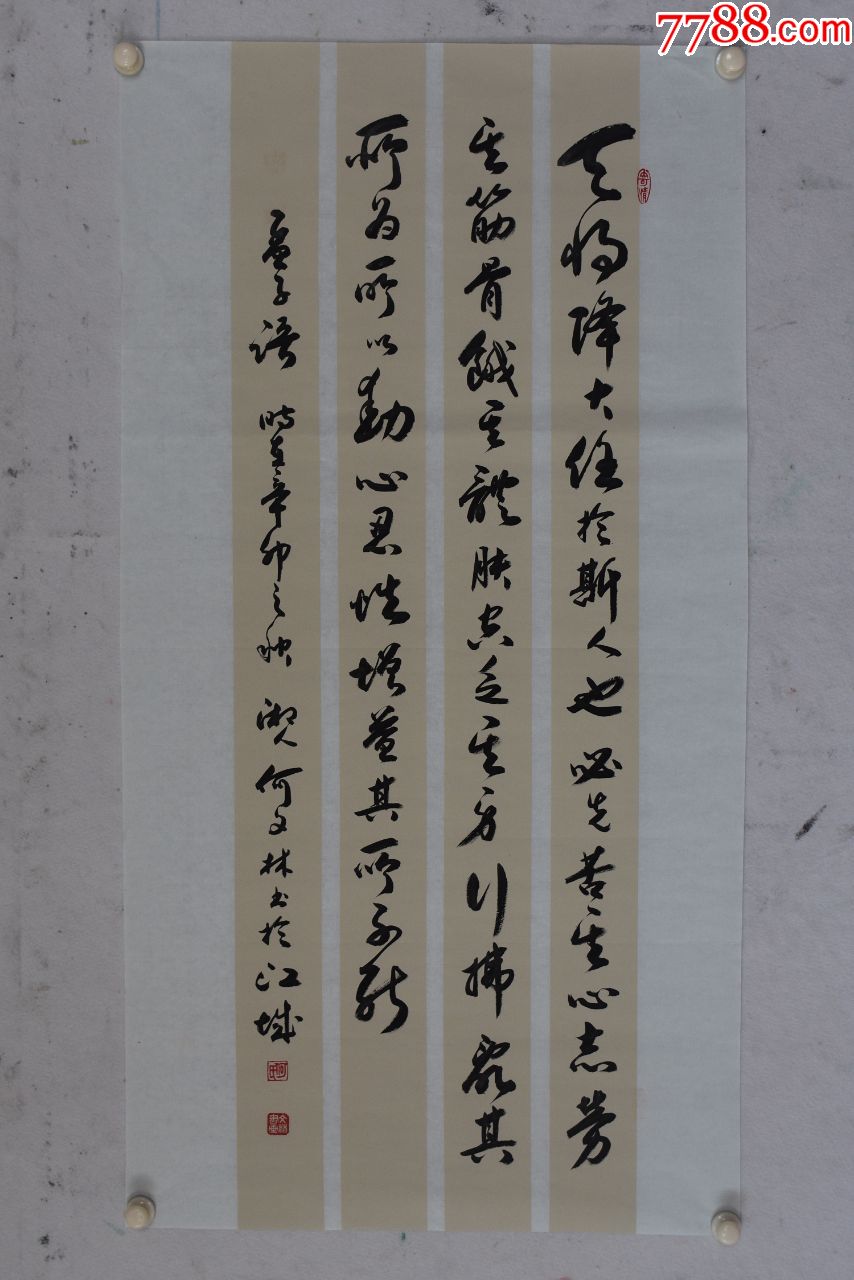 7788.com
天將降大任於斯人也必先苦其心志勞
其筋骨餓其體肤空乏其身行拂亂其
所為所以動心忍性增益其所不能
孟子語 時在辛卯之秋 何文林書於江城